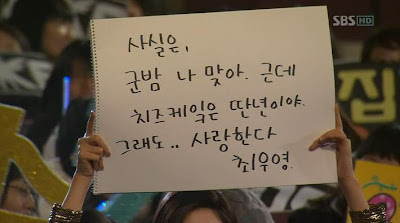 SBS HD
사실은,
군밤 나 맞아. 근데
치즈케익은 딴년이야.
그래도.. 사랑한다
최우영
집